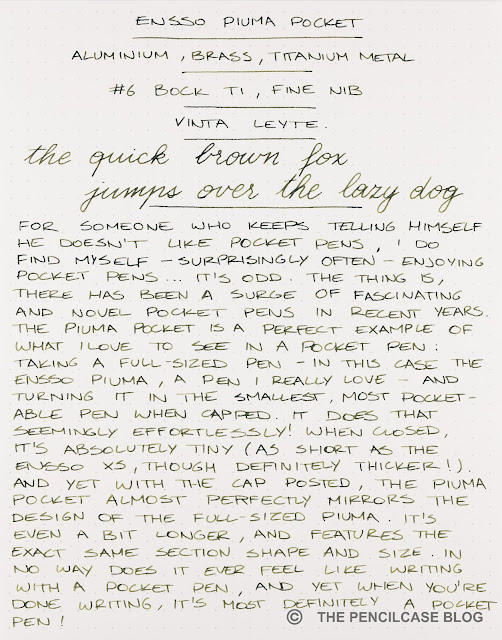 ENSSO PIUMA POCKET
ALUMINIUM, BRASS, TITANIUM METAL
#6 BOCK TI, FINE NIB
VINTA LEYTE.
the quick brown fox
jumps over the lazy dog
FOR SOMEONE WHO KEEPS TELLING HIMSELF
HE DOESN'T LIKE POCKET PENS, I DO
FIND MYSELF - SURPRISINGLY OFTEN - ENJOYING
POCKET PENS... IT'S ODD. THE THING IS,
THERE HAS BEEN A SURGE OF FASCINATING
AND NOVEL POCKET PENS IN RECENT YEARS.
THE PIUMA POCKET IS A PERFECT EXAMPLE OF
WHAT I LOVE TO SEE IN A POCKET PEN:
TAKING A FULL-SIZED PEN - IN THIS CASE THE
ENSSO PIUMA, A PEN I REALLY LOVE - AND
TURNING IT IN THE SMALLEST, MOST POCKET-
ABLE PEN WHEN CAPPED. IT DOES THAT
SEEMINGLY EFFORTLESSLY! WHEN CLOSED,
IT'S ABSOLUTELY TINY (AS SHORT AS THE
ENSSO XS, THOUGH DEFINITELY THICKER!).
AND YET WITH THE CAP POSTED, THE PIUMA
POCKET ALMOST PERFFECTLY MIRRORS THE
DESIGN OF THE FULL-SIZED PIUMA. IT'S
EVEN A BIT LONGER, AND FEATURES THE
EXACT SAME SECTION SHAPE AND SIZE. IN
NO WAY DOES IT EVER FEEL LIKE WRITING
WITH A POCKET PEN, AND YET WHEN YOU'RE
DONE WRITING, IT'S MOST DEFINITELY A POCKET
PEN!
© THE PENCILCASE BLOG